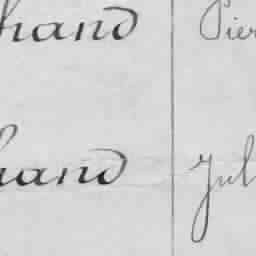 hand Pier
hand Jul